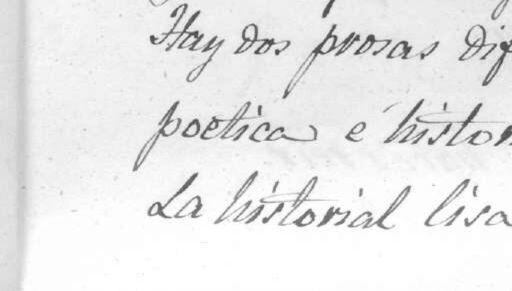 Hay dos prosas dif
poetica é histor
La historial lisa